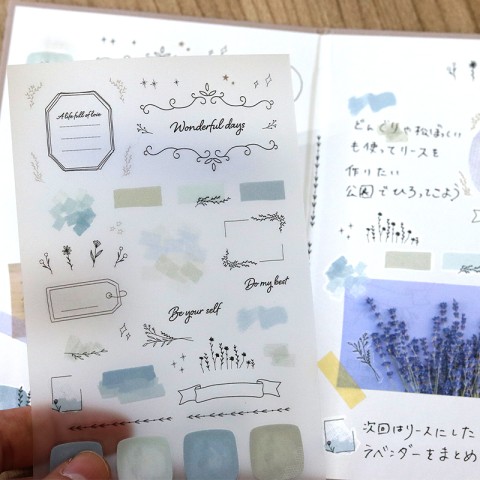 A life full of love
Wonderful days
Do my best
Be your self
どんぐりや松ぼっくり
も使ってリースを
作りたい
公園でひろってこよう
次回はリースにした
ラベンダーをまとめ